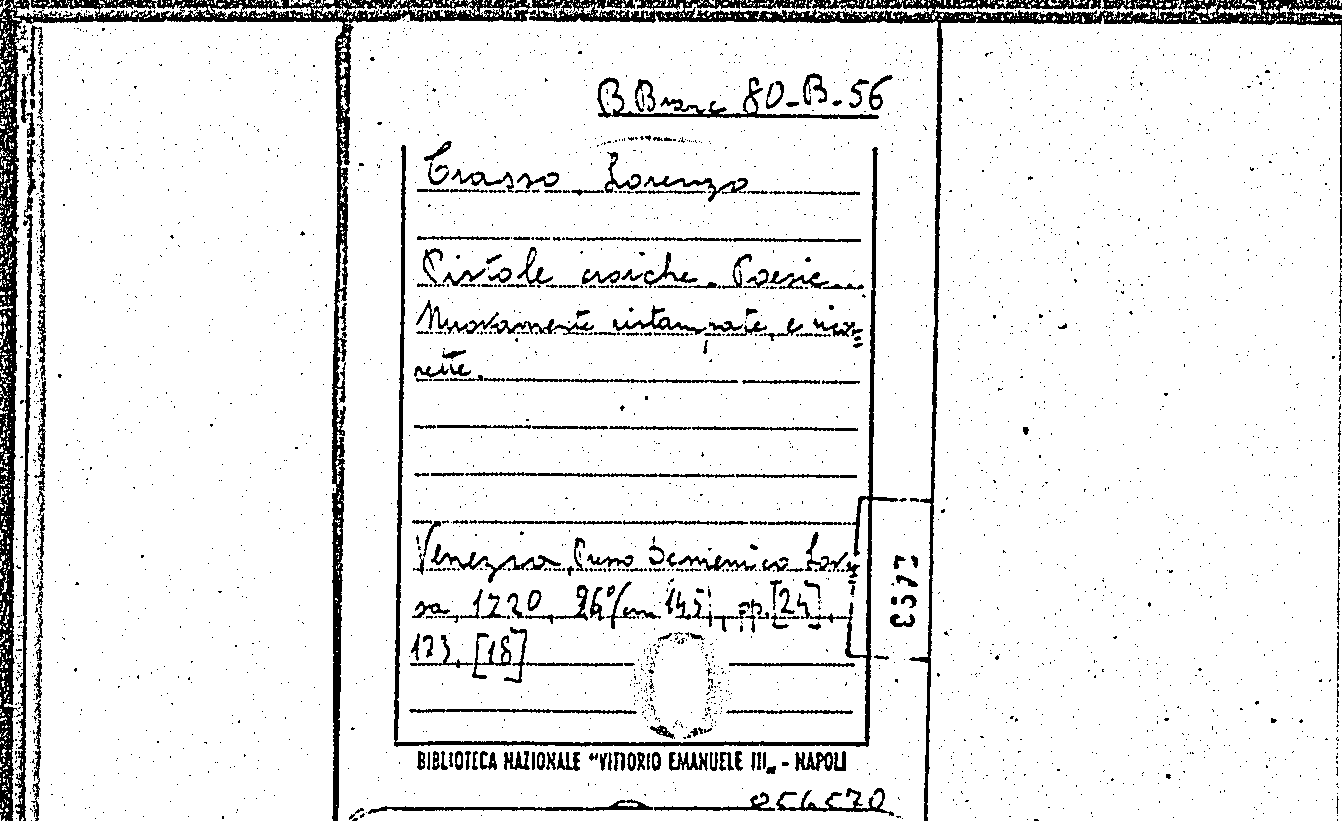 B. Branc 80-B-56
Crasso, Lorenzo
Pistole eroiche. Poesie...
Nuovamente ristampate, e ricor=
rette.
Venezia, Domenico Lovi
sa, 1720, cm 14,5, pp. [24],
[18]
BIBLIOTECA NAZIONALE "VITTORIO EMANUELE III" - NAPOLI